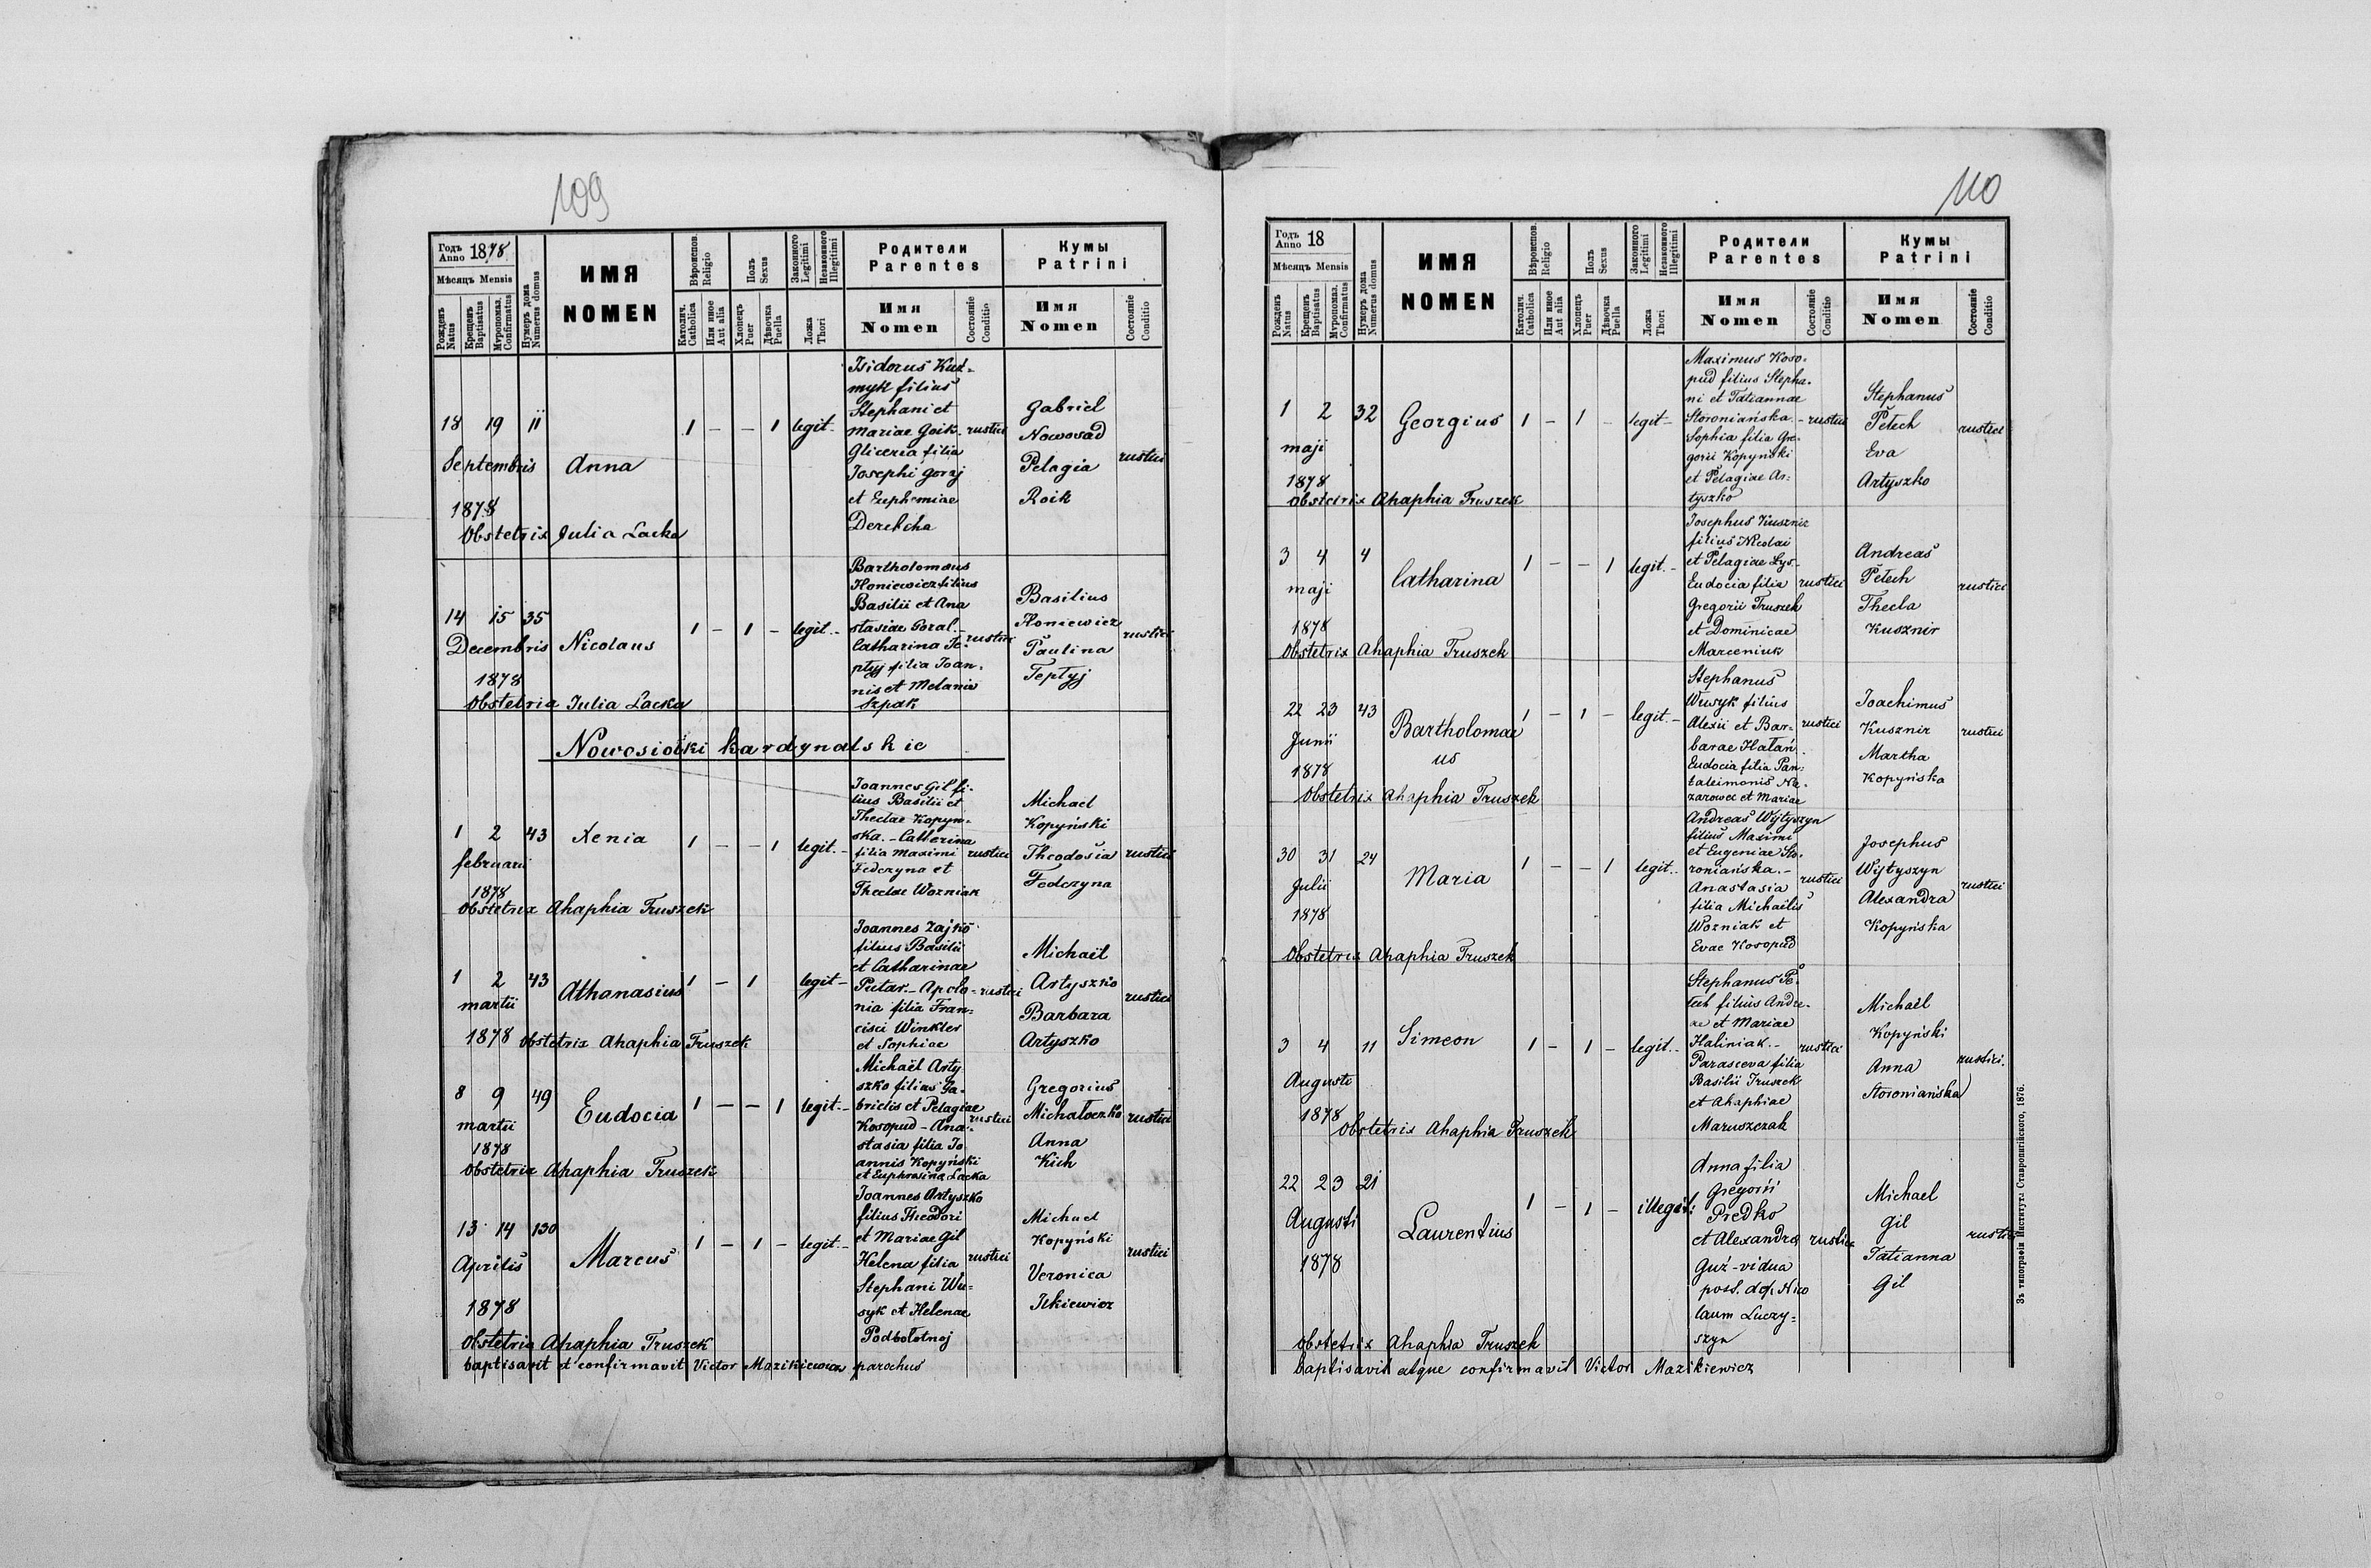 109
Годъ Anno 1878
Мѣсяцъ Mensis
Рожденъ Natus
Крещенъ Baptisatus
Мѵропомаз. Confirmatus
Нумеръ дома Numerus domus
ИМЯ
NOMEN
Вѣроиспов. Religio
Католич. Catholica
Или иное Aut alia
Полъ Sexus
Хлопецъ Puer
Дѣвочка Puella
Законного Legitimi
Незаконного Illegitimi
Ложа Thori
Родители
Parentes
Имя
Nomen
Состояніе Conditio
Кумы
Patrini
Имя
Nomen
Состояніе Conditio
18 19 11
Septembris
1878
Anna
1 - - 1 legit.
Isidorus Kuz-
myk filius
Stephani et
Mariae Goik.
Gliceria filia
Josephi Gorzj
et Euphemiae
Derekcha
rustici
Gabriel
Nowosad
Pelagia
Roik
rustici
Obstetrix Julia Lacka
14 15 35
Decembris
1878
Nicolaus
1 - 1 - legit.-
Bartholomaus
Honiewicz filius
Basilii et Ana
stasiae Goral.-
Catharina Te-
ptyj filia Joan-
nis et Melanie
Szpak
rustici
Basilius
Honiewicz
Paulina
Teptyj
rustici
Obstetrix Julia Lacka
Nowosiołki kardynalskie
1 2 43
februarii
1878
Xenia
1 - - 1 legit.-
Joannes Gil fi-
lius Basilii et
Theclae Kopyn-
ska.- Catherina
filia Maximi
Fedczyna et
Theclae Wozniak
rustici
Michael
Kopyński
Theodosia
Fedczyna
rustici
Obstetrix Ahaphia Truszek
1 2 43
martii
1878
Athanasius
1 - 1 legit-
Joannes Zajko
filius Basilii
et Catharinae
Putar.- Apolo-
nia filia Fran-
cisci Winkler
et Sophiae
rustici
Michaël
Artyszko
Barbara
Artyszko
rustici
obstetrix Ahaphia Truszek
8 9 49
martii
1878
Eudocia
1 - - 1 legit.-
Michaël Arty
szko filius Ga-
brielis et Pelagiae
Kosopud - Ana-
stasia filia Jo
annis Kopyński
et Euphrosina Lacka
rustici
Gregorius
Michałoczko
Anna
Kich
rustici
Obstetrix Ahaphia Truszek
13 14 130
Aprilis
1878
Marcus
1 - 1 - legit.-
Joannes Artyszko
filius Theodori
et Mariae Gil
Helena filia
Stephani Wu-
syk et Helenae
Podbołotnoj
rustici
Michael
Kopyński
Veronica
Ilkiewicz
rustici
Obstetrix Ahaphia Truszek
baptisavit et confirmavit Victor Mazikiewicz parochus
110
Годъ Anno 18
Мѣсяцъ Mensis
Рожденъ Natus
Крещенъ Baptisatus
Мѵропомаз. Confirmatus
Нумеръ дома Numerus domus
ИМЯ
NOMEN
Вѣроиспов. Religio
Католич. Catholica
Или иное Aut alia
Полъ Sexus
Хлопецъ Puer
Дѣвочка Puella
Законного Legitimi
Незаконного Illegitimi
Ложа Thori
Родители
Parentes
Имя
Nomen
Состояніе Conditio
Кумы
Patrini
Имя
Nomen
Состояніе Conditio
1 2 32
maji
1878
Georgius
1 - 1 - legit-
Maximus Koso-
pud filius Stepha-
ni et Tatiannae
Storoniańska.-
Sophia filia Gre-
gorii Kopyński
et Pelagiae Ar-
tyszko
rustici
Stephanus
Petech
Eva
Artyszko
rustici
Obstetrix Ahaphia Truszek
3 4 4
maji
1878
Catharina
1 - - 1 legit.-
Josephus Kusznir
filius Nicolai
et Pelagiae Lys-
Eudocia filia
Gregorii Truszek
et Dominicae
Marceniuk
rustici
Andreas
Petech
Thecla
Kusznir
rustici
Obstetrix Ahaphia Truszek
22 23 43
Junii
1878
Bartholomae
us
1 - 1 - legit.-
Stephanus
Wusyk filius
Alexii et Bar-
barae Hałań.
Eudocia filia Pan-
taleimonis Na-
zarowec et Mariae
rustici
Joachimus
Kusznir
Martha
Kopyńska
rustici
Obstetrix Ahaphia Truszek
30 31 24
Julii
1878
Maria
1 - - 1 legit.-
Andreas Wytyszyn
filius Maximi
et Eugeniae Sto-
roniańska.-
Anastasia
filia Michaëlis
Wozniak et
Evae Kosopud
rustici
Josephus
Wytyszyn
Alexandra
Kopyńska
rustici
Obstetrix Ahaphia Truszek
3 4 11
Augusti
1878
Simeon
1 - 1 - legit.-
Stephanus Pe-
tech filius Andre-
ae et Mariae
Haliniak.-
Parasceva filia
Basilii Truszek
et Ahaphiae
Maruszczak
rustici
Michaël
Kopyński
Anna
Storoniańska
rustici.
Obstetrix Ahaphia Truszek
22 23 21
Augusti
1878
Laurentius
1 - 1 - illegit:
Anna filia
Gregorii
Predko
et Alexandra
Guź-vidua
post. def. Nico
laum Luczy-
szyn
rustica
Michael
Gil
Tatianna
Gil
rustici
Obstetrix Ahaphia Truszek
baptisavit atque confirmavit Victor Mazikiewicz
Зъ типографіи Института Ставропигійского, 1876.